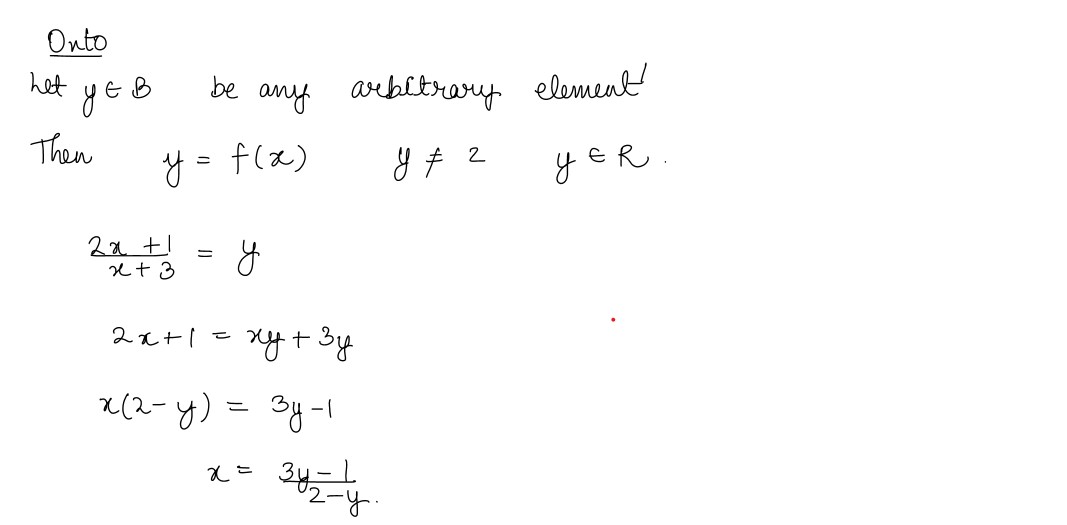 Onto
Let y ∈ B be any arbitrary element
Then y = f(x) y ≠ 2 y ∈ R .
2x + 1 / x + 3 = y
2x + 1 = xy + 3y
x(2 - y) = 3y - 1
x = 3y - 1 / 2 - y .